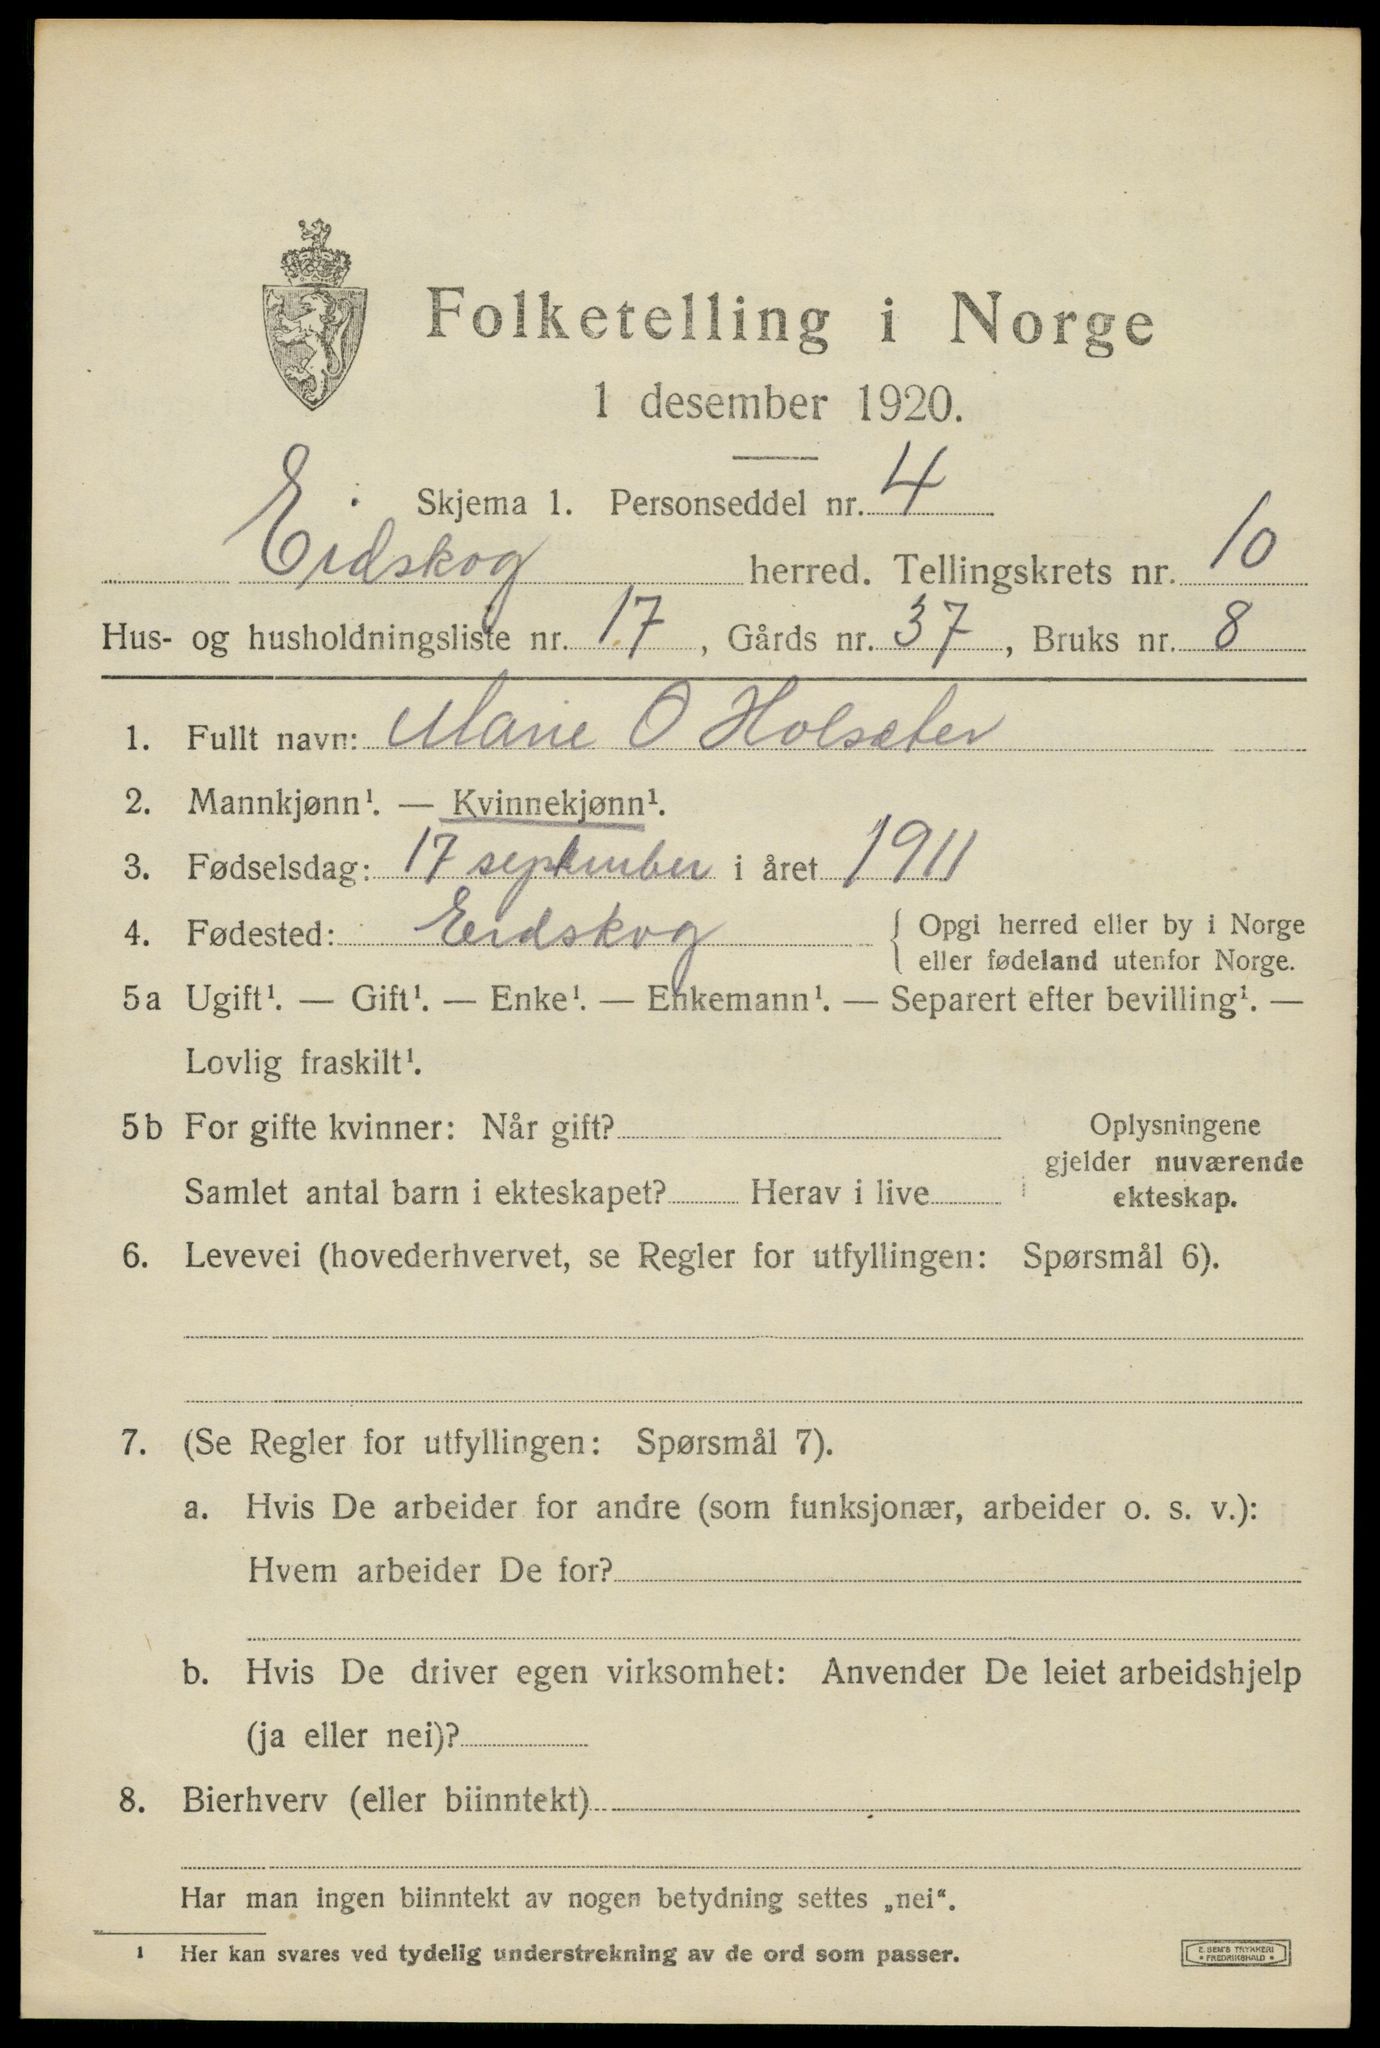 Folketelling i Norge
1 desember 1920.
Skjema 1. Personseddel nr. 4
Eidskog herred. Tellingskrets nr. 10
Hus- og husholdningsliste nr. 17, Gårds nr. 37, Bruks nr. 8
1. Fullt navn: Marie O Holseter
2. Mannkjønn¹. — Kvinnekjønn¹.
3. Fødselsdag: 17 september i året 1911
4. Fødested: Eidskog { Opgi herred eller by i Norge
eller fødeland utenfor Norge.
5a Ugift¹. — Gift¹. — Enke¹. — Enkemann¹. — Separert efter bevilling¹. —
Lovlig fraskilt¹.
5b For gifte kvinner: Når gift?
Samlet antal barn i ekteskapet? Herav i live
Oplysningene
gjelder nuværende
ekteskap.
6. Levevei (hovederhvervet, se Regler for utfyllingen: Spørsmål 6).
7. (Se Regler for utfyllingen: Spørsmål 7).
a. Hvis De arbeider for andre (som funksjonær, arbeider o. s. v.):
Hvem arbeider De for?
b. Hvis De driver egen virksomhet: Anvender De leiet arbeidshjelp
(ja eller nei)?
8. Bierhverv (eller biinntekt)
Har man ingen biinntekt av nogen betydning settes „nei“.
¹ Her kan svares ved tydelig understrekning av de ord som passer.
E. SEM'S TRYKKERI
• FREDRIKSHALD •